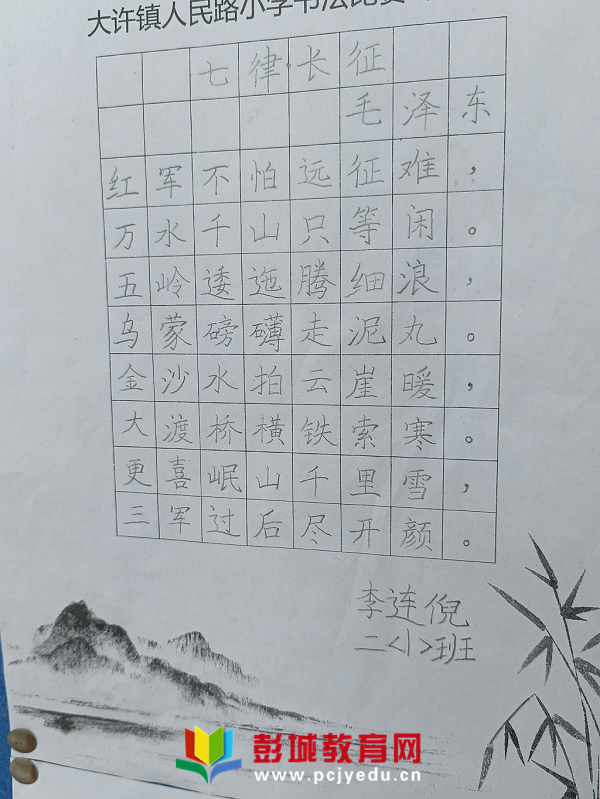 大许镇人民路小学书法比赛
七律·长征
毛泽东
红军不怕远征难，
万水千山只等闲。
五岭逶迤腾细浪，
乌蒙磅礴走泥丸。
金沙水拍云崖暖，
大渡桥横铁索寒。
更喜岷山千里雪，
三军过后尽开颜。
李连倪
二<小>班
彭城教育网
www.pcjyedu.cn